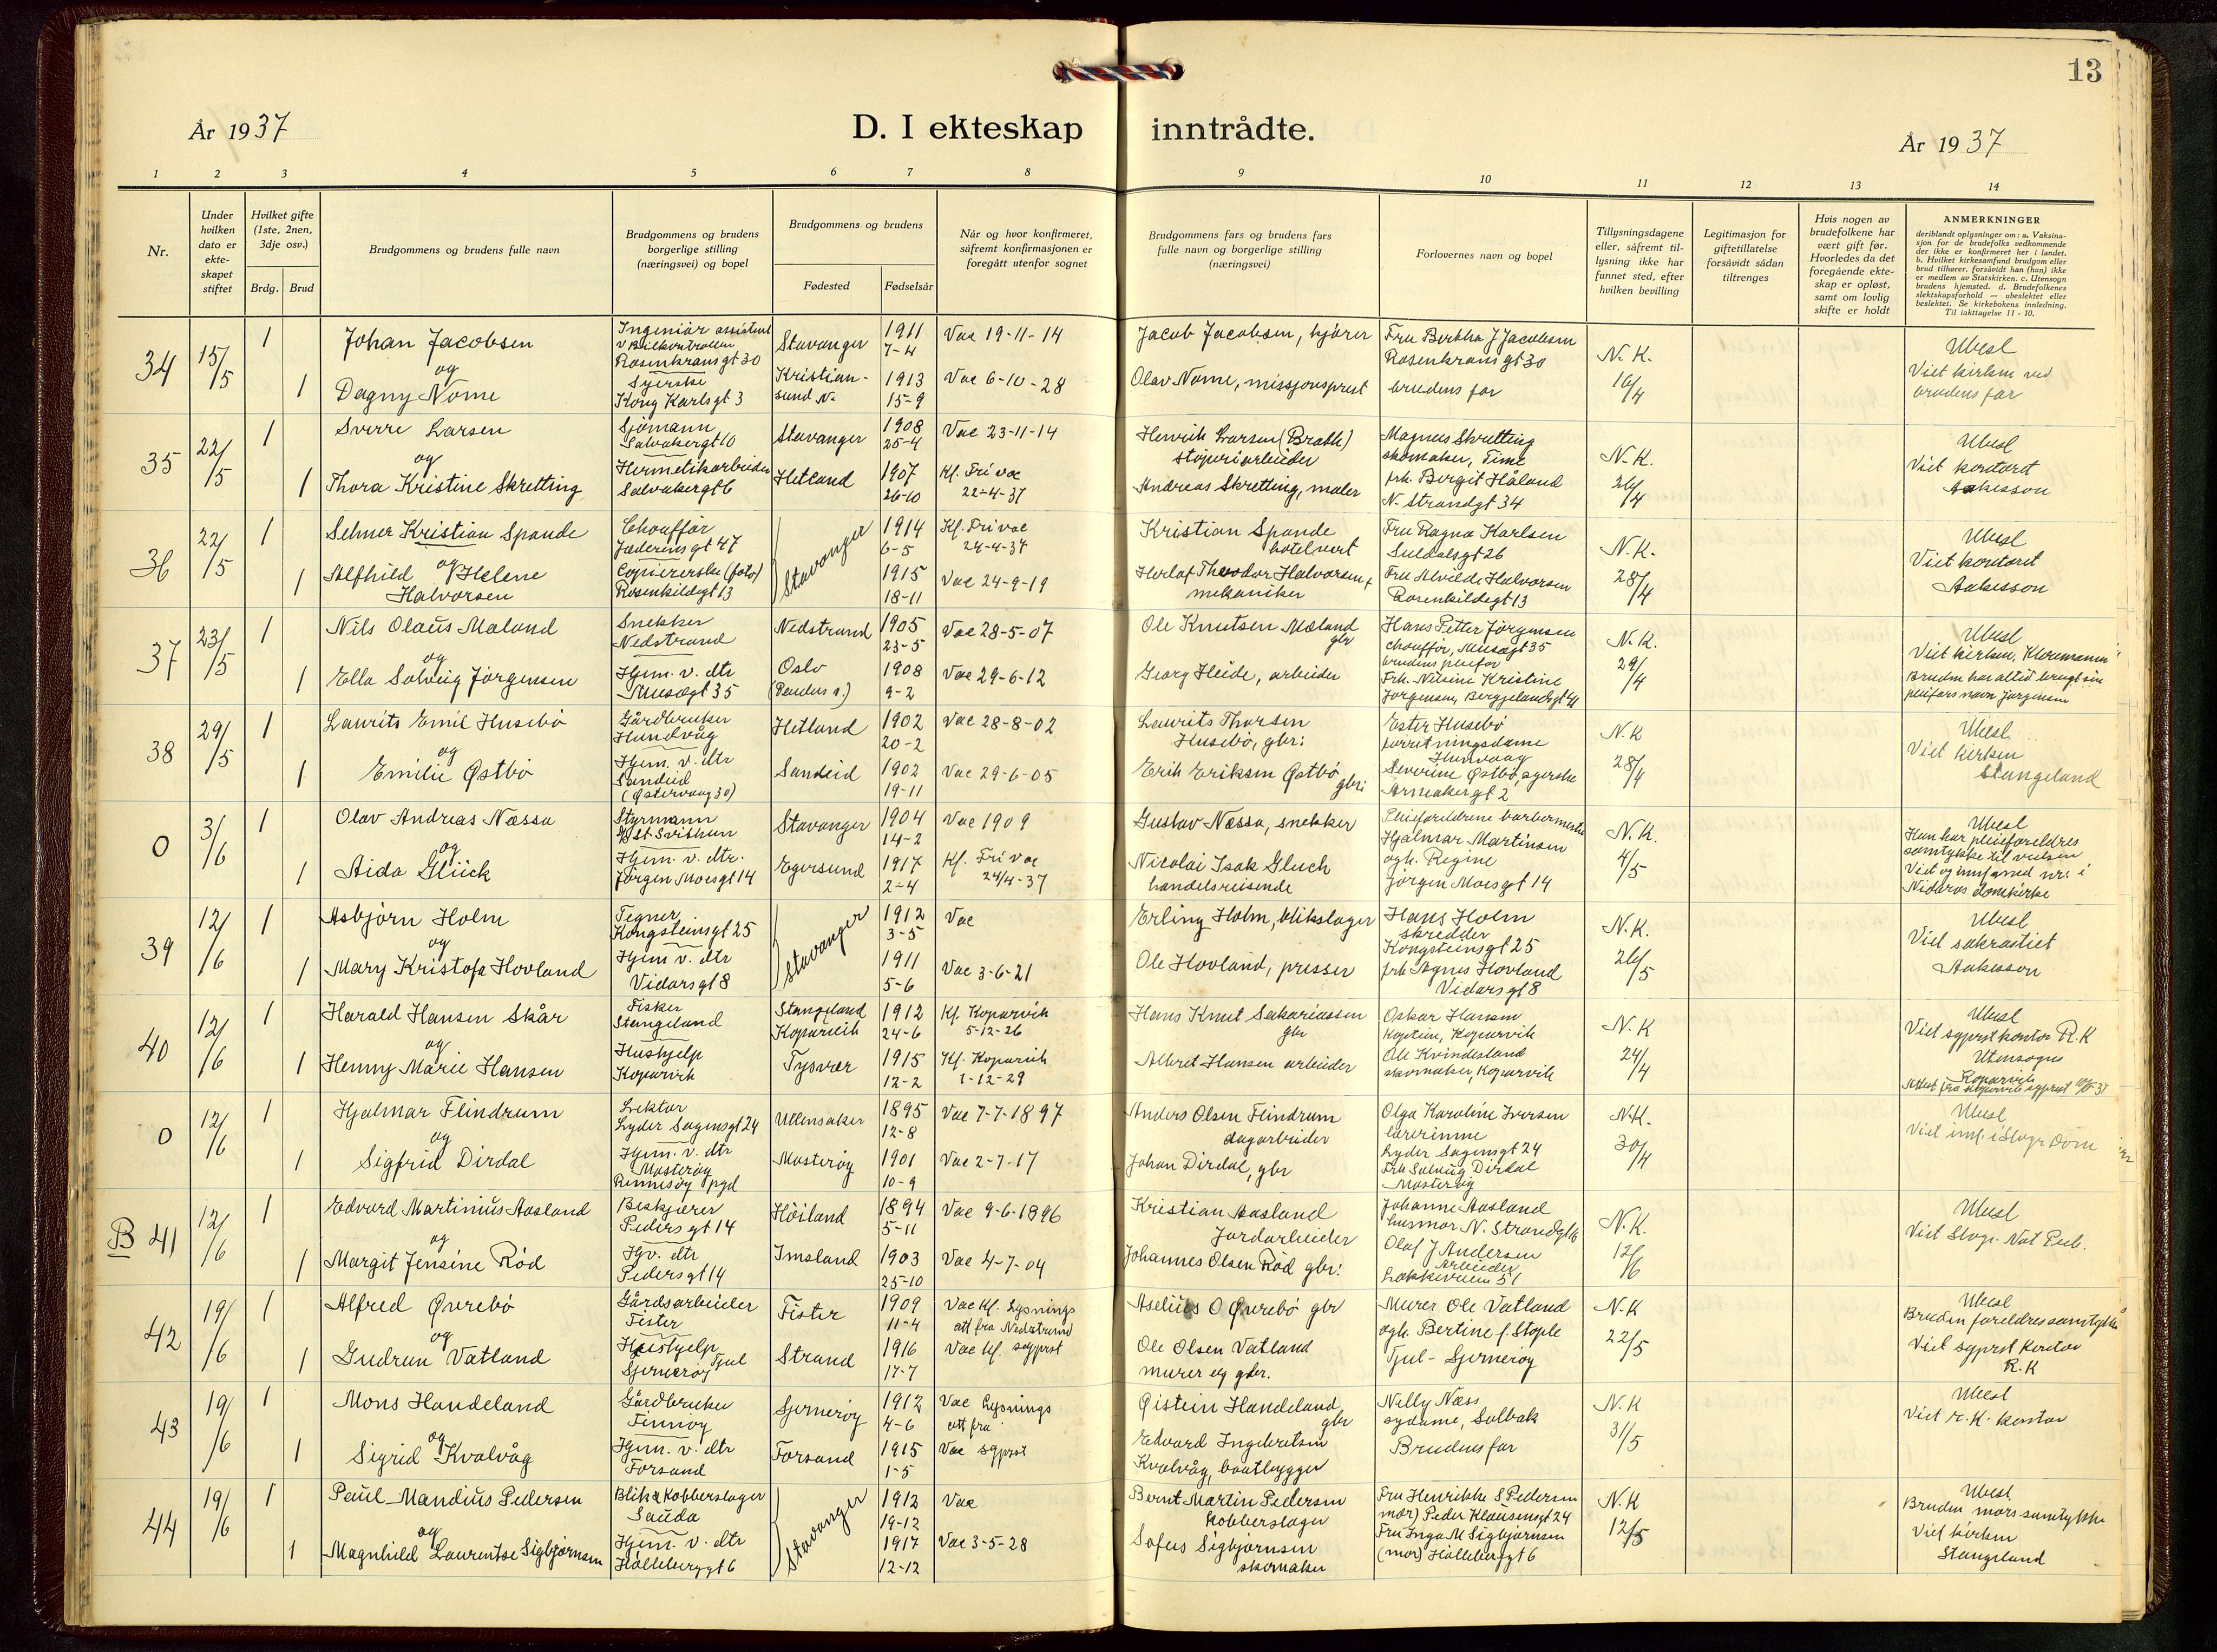 13
År 1937
D. I ekteskap inntrådte.
År 1937
1 2 3 4 5 6 7 8 9 10 11 12 13 14
Nr.
Under hvilken dato er ekteskapet stiftet
Hvilket gifte (1ste, 2nen, 3dje osv.)
Brdg. Brud
Brudgommens og brudens fulle navn
Brudgommens og brudens borgerlige stilling (næringsvei) og bopel
Brudgommens og brudens
Fødested Fødselsår
Når og hvor konfirmeret, såfremt konfirmasjonen er foregått utenfor sognet
Brudgommens fars og brudens fars fulle navn og borgerlige stilling (næringsvei)
Forlovernes navn og bopel
Tillysningsdagene eller, såfremt tillysning ikke har funnet sted, efter hvilken bevilling
Legitimasjon for giftetillatelse forsåvidt sådan tiltrenges
Hvis nogen av brudefolkene har vært gift før. Hvorledes da det foregående ekteskap er opløst, samt om lovlig skifte er holdt
ANMERKNINGER
deriblandt oplysninger om: a. Vaksinasjon for de brudefolks vedkommende der ikke er konfirmeret her i landet. b. Hvilket kirkesamfund brudgom eller brud tilhører, forsåvidt han (hun) ikke er medlem av Statskirken. c. Utensogn brudens hjemsted. d. Brudefolkenes slektskapsforhold — ubeslektet eller beslektet. Se kirkebokens innledning. Til iakttagelse 11 - 10.
34 15/5 1 Johan Jacobsen
Ingeniør assistent v Bilkontrollen Rosenkransgt 30
Stavanger 1911 7-4 Vac 19-11-14
Jacob Jacobsen, kjører
Fru Bertha J Jacobsen Rosenkransgt 30
N.K. 16/4
Ubesl
Viet kirken ved brudens far
og
1 Dagny Nome
Syerske Kong Karlsgt 3
Kristiansund N. 1913 15-9 Vac 6-10-28
Olav Nome, missjonsprest
brudens far
35 22/5 1 Sverre Larsen
Sjømann Salvakergt 10
Stavanger 1908 25-4 Vac 23-11-14
Henrik Larsen (Brath) støperiarbeider
Magnus Skretting skomaker, Time
N.K. 26/4
Ubesl
Viet kontoret Aakesson
og
1 Thora Kristine Skretting
Hermetikarbeider Salvakergt 6
Hetland 1907 26-10 Kf. Fri vac 22-4-37
Andreas Skretting, maler
frk. Bergit Håland N. Strandgt 34
36 22/5 1 Selmer Kristian Spande
Chauffør Jæderensgt 47
Stavanger 1914 6-5 Kf. Fri vac 24-4-37
Kristian Spande hotelvert
Fru Ragna Karlsen Suldalsgt 26
N.K. 28/4
Ubesl
Viet kontoret Aakesson
og
1 Alfhild Helene Halvorsen
Copiererske (foto) Rosenkildegt 13
1915 18-11 Vac 24-9-19
Herlof Theodor Halvorsen, mekaniker
Fru Alvilde Halvorsen Rosenkildegt 13
37 23/5 1 Nils Olaus Maland
Snekker Nedstrand
Nedstrand 1905 23-5 Vac 28-5-07
Ole Knutsen Mæland gbr
Hans Petter Jørgensen chauffør, Musegt 35 brudens pleifar
N.K. 29/4
Ubesl
Viet kirken, Kloumann
Bruden har altid brugt sin pleifars navn Jørgensen
og
1 Ella Solveig Jörgensen
Hjem. v. dtr Musegt 35
Oslo (Paulus s.) 1908 9-2 Vac 29-6-12
Georg Heide, arbeider
Frk. Nilsine Kristine Jørgensen, Bergjelandsgt 41
38 29/5 1 Laurits Emil Husebö
Gårdbruker Hundvåg
Hetland 1902 20-2 Vac 28-8-02
Laurits Thorsen Husebö, gbr.
Ester Husebö forretningsdame Hundvaag
N.K 28/4
Ubesl
Viet kirken Stangeland
og
1 Emilie Østbö
Hjem. v. dtr Sandeid (Østervaag 30)
Sandeid 1902 19-11 Vac 29-6-05
Erik Eriksen Østbö gbr
Severine Østbö, syerske Armakergt 2
0 3/6 1 Olav Andreas Næssa
Styrmann St. Svithun
Stavanger 1904 14-2 Vac 1909
Gustav Næssa, snekker
Pleieforeldrene barbermester Hjalmar Martinsen
N.K. 4/5
Ubesl
Hun har pleieforeldres samtykke til vielsen
Viet og innf. med nr. i Nidaros domkirke
og
1 Aida Glück
Hjem. v. dtr. Jörgen Moesgt 14
Egersund 1917 2-4 Kf. Fri vac 24/4-37
Nicolai Isak Gluck handelsreisende
ogh. Regine Jörgen Moesgt 14
39 12/6 1 Asbjörn Holm
Tegner Kongsteinsgt 25
Stavanger 1912 3-5 Vac
Erling Holm, blikslager
Hans Holm skredder Kongsteinsgt 25
N.K. 26/5
Ubesl
Viet sakrastiet Aakesson
og
1 Mary Kristofa Hovland
Hjem v. dtr Vidarsgt 8
1911 5-6 Vac 3-6-21
Ole Hovland, presser
frk Agnes Hovland Vidarsgt 8
40 12/6 1 Harald Hansen Skår
Fisker Stangeland
Stangeland Kopervik 1912 24-6 Kf. Kopervik 5-12-26
Hans Knut Sakariassen gbr
Oskar Hansen kaptein, Kopervik
N.K 24/4
Ubesl
Viet sgprst kontor R.K
Utensogns Kopervik
og
1 Henny Marie Hansen
Hushjelp Kopervik
Tysvær 1915 12-2 Kf. Kopervik 1-12-29
Albret Hansen arbeider
Ole Kvindesland skomaker, Kopervik
0 12/6 1 Hjalmar Flindrum
Lektor Lyder Sagensgt 24
Ullensaker 1895 12-8 Vac 7-7-1897
Anders Olsen Flindrum dagarbeider
Olga Karoline Iversen lærerinne Lyder Sagensgt 24
N.K. 30/4
Ubesl
Viet innf. i Stvgr Dom
og
1 Sigfrid Dirdal
Hjem. v. dtr Mosterøy Rennesøy pgd
Mosterøy 1901 10-9 Vac 2-7-17
Johan Dirdal, gbr
Frk Solveig Dirdal Mosterøy
B 41 12/6 1 Edvard Martinius Aasland
Beskjærer Pedersgt 14
Höiland 1894 5-11 Vac 9-6-1896
Kristian Aasland Jordarbeider
Johanne Aasland husmor N. Strandgt
N.K. 12/6
Ubesl
Viet Stvgr. Not Pub.
og
1 Margit Jensine Rød
Hjv. dtr Pedersgt 14
Imsland 1903 25-10 Vac 4-7-04
Johannes Olsen Rød gbr.
Olaf J Andersen Arbeider Løkkeveien 51
42 19/6 1 Alfred Øvrebö
Gårdsarbeider Fister
Fister 1909 11-4 Vac Kf. Lysnings att fra Nedstrand
Aselius O Øvrebö gbr
Murer Ole Vatland
N.K 22/5
Ubesl
Bruden foreldres samtykke
Viet sgprst kontor R.K
og
1 Gudrun Vatland
Hushjelp Tjul Sjernerøy
Strand 1916 17-7 Vac Kf. sgprst
Ole Olsen Vatland murer og gbr.
ogh. Bertine f. Stople Tjul - Sjernerøy
43 19/6 1 Mons Handeland
Gårdbruker Finnøy
Sjernerøy 1912 4-6 Vac Lysnings att fra
Øistein Handeland gbr
Nelly Næss sydame, Solbak
N.K 31/5
Ubesl
Viet r.k. kontor
og
1 Sigrid Kvalvåg
Hjem. v. dtr Forsand
Forsand 1915 1-5 Vac sgprst
Edvard Ingebretsen Kvalvåg, baatbygger
Brudens far
44 19/6 1 Paul Mandius Pedersen
Blik & Kobberslager Sauda
Stavanger 1912 19-12 Vac
Bernt Martin Pedersen kobberslager
Fru Henrikke S Pedersen mor) Peder Klausensgt 24
N.K 12/5
Ubesl
Bruden mors samtykke
Viet kirken Stangeland
og
1 Magnhild Laurentse Sigbjørnsen
Hjem. v. dtr Hölleberggt 6
1917 12-12 Vac 3-5-28
Sofus Sigbjørnsen skomaker
Fru Inga M Sigbjørnsen (mor) Hölleberggt 6